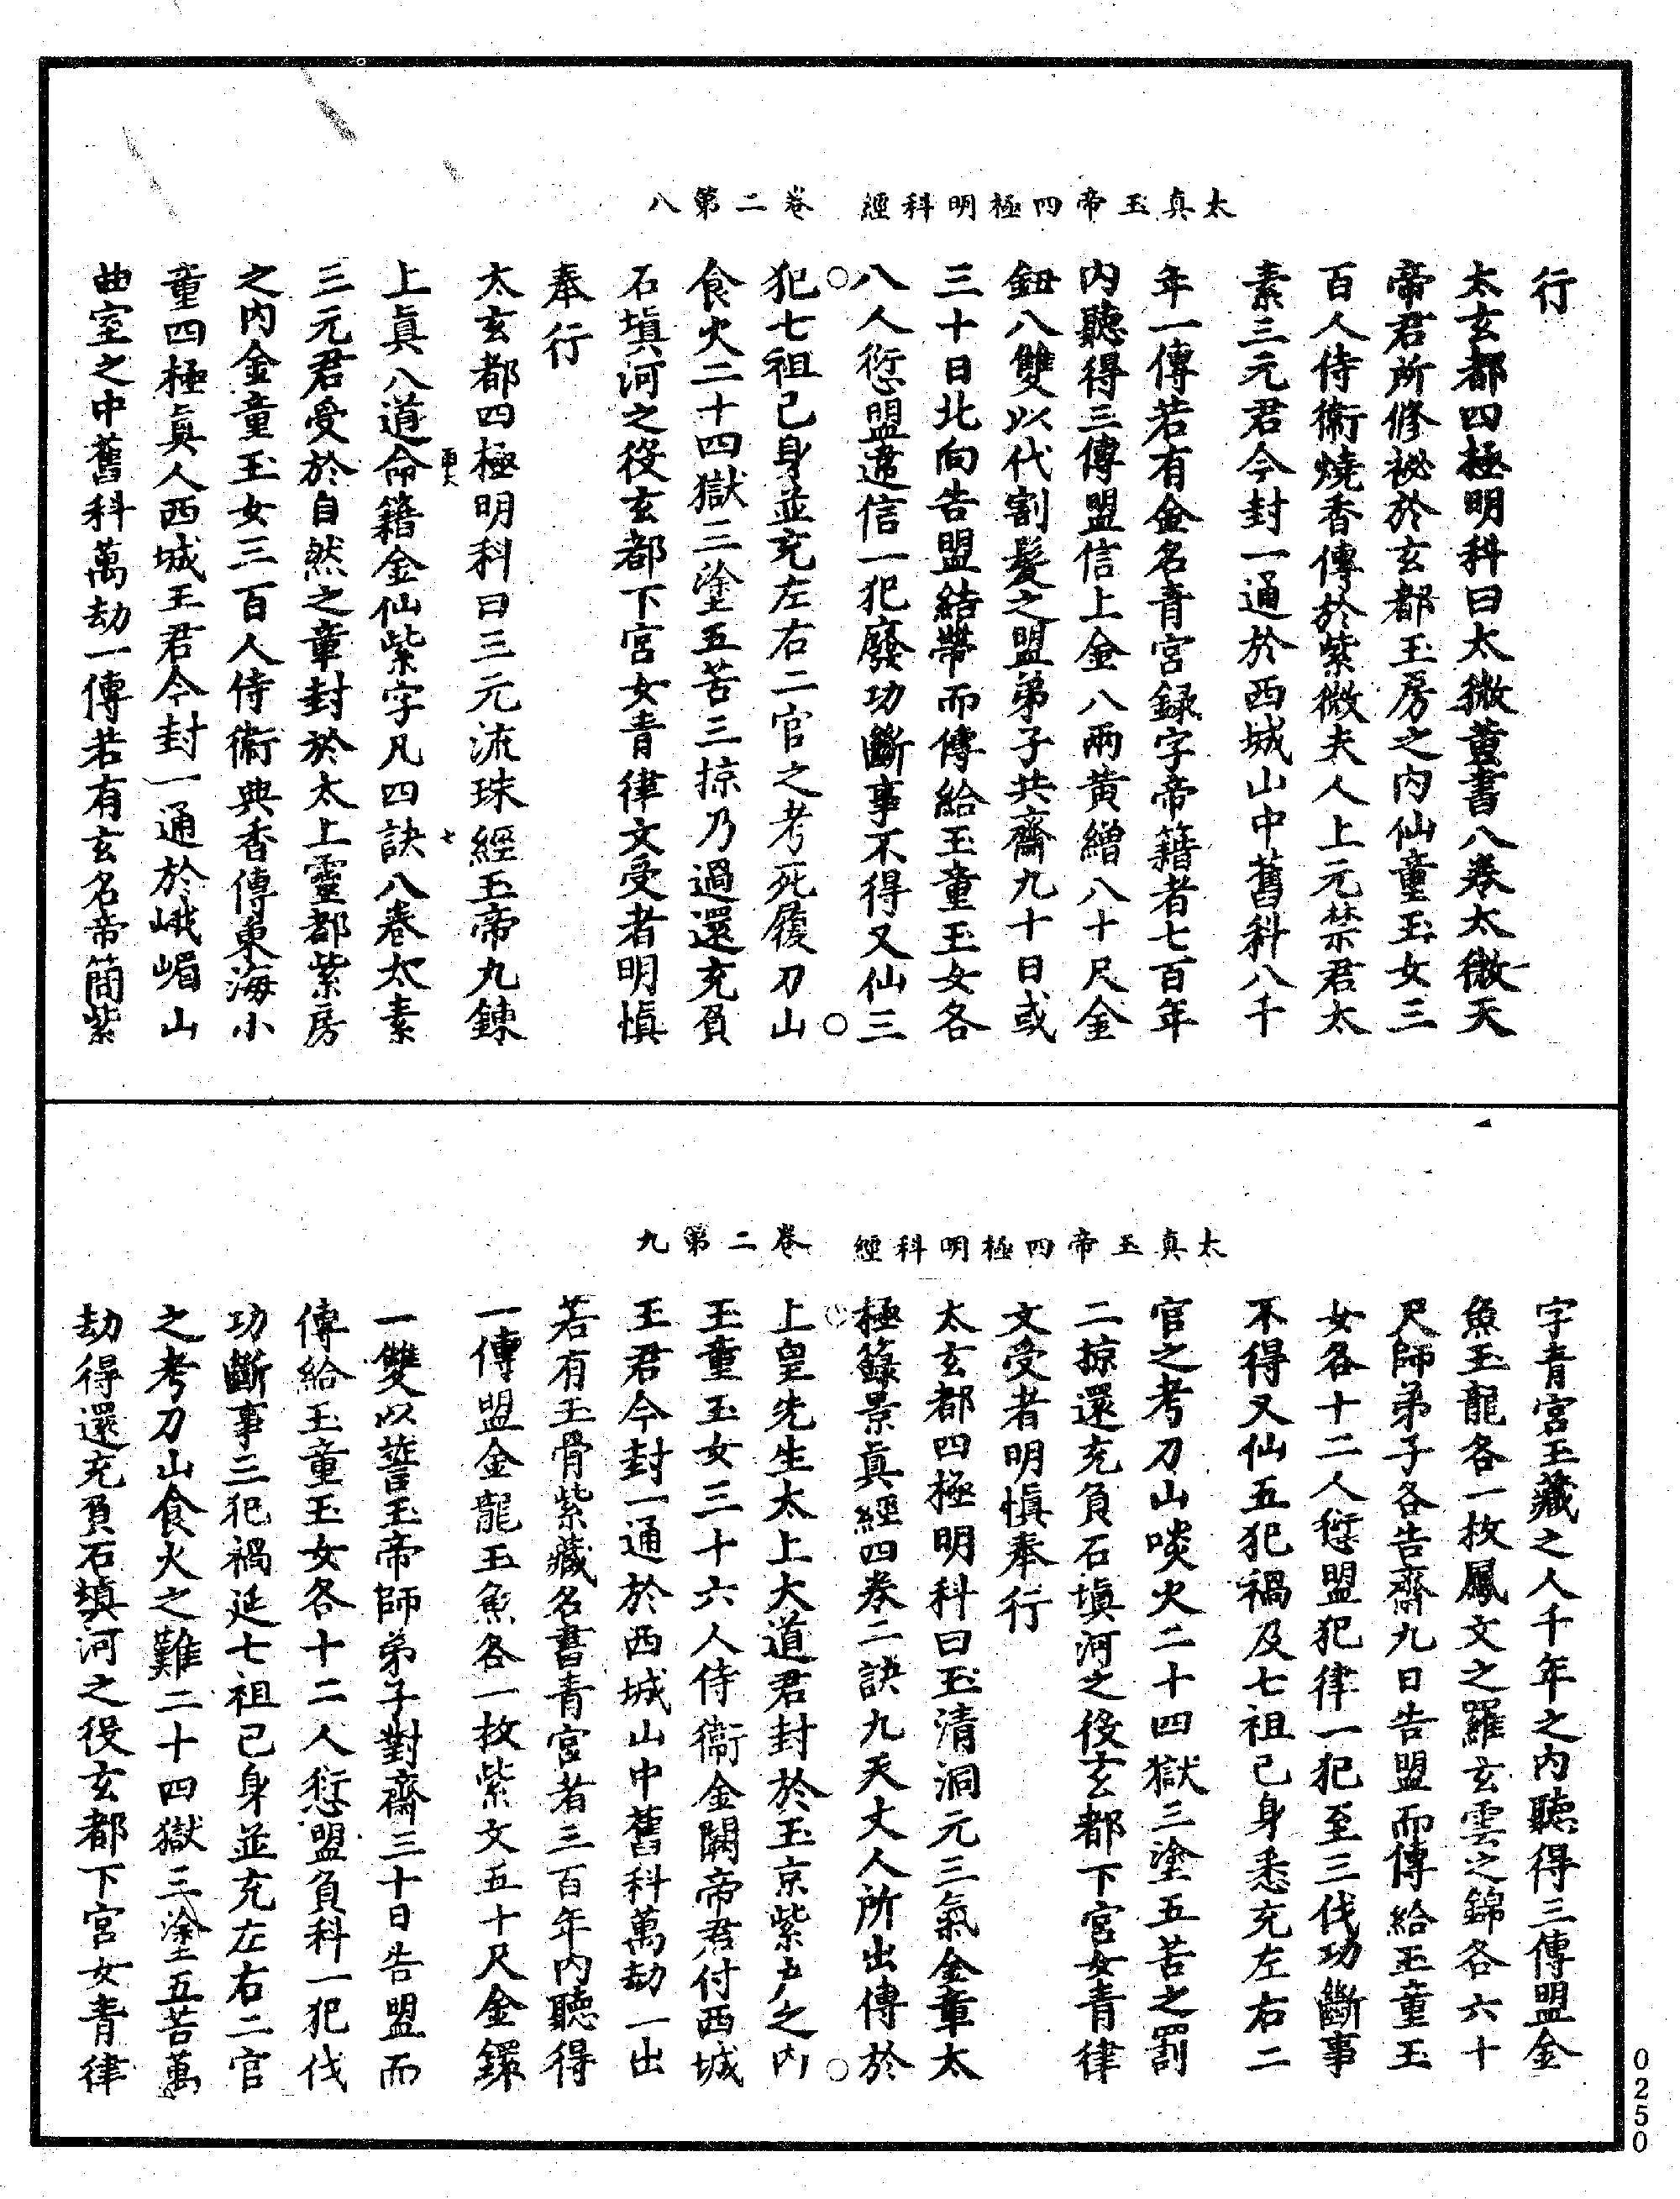 太真玉帝四極明科經　卷二第八
行
太玄都四極明科曰太微黃書八卷太微天
帝君所修祕於玄都玉房之內仙童玉女三
百人侍衛燒香傳於紫微夫人上元禁君太
素三元君今封一通於西城山中舊科八千
年一傳若有金名青宮録字帝籍者七百年
內聽得三傳盟信上金八兩黃繒八十尺金
鈕八雙以代割髮之盟弟子共齋九十日或
三十日北向告盟結幣而傳給玉童玉女各
八人愆盟違信一犯廢功斷事不得又仙三
犯七祖己身並充左右二官之考死履刀山
食火二十四獄三塗五苦三掠乃過還充負
石塡河之役玄都下宮女青律文受者明愼
奉行
太玄都四極明科曰三元流珠經玉帝九鍊
七
上眞八道命籍金仙紫字凡四訣八卷太素
三元君受於自然之章封於太上靈都紫房
之內金童玉女三百人侍衛典香傳東海小
童四極眞人西城王君今封一通於峨嵋山
曲室之中舊科萬劫一傳若有玄名帝簡紫
太真玉帝四極明科經　卷二第九
字青宮玉藏之人千年之內聽得三傳盟金
魚玉龍各一枚鳳文之羅玄雲之錦各六十
尺師弟子各告齋九日告盟而傳給玉童玉
女各十二人愆盟犯律一犯至三伐功斷事
不得又仙五犯禍及七祖己身悉充左右二
官之考刀山啖火二十四獄三塗五苦之罰
二掠還充負石塡河之役玄都下宮女青律
文受者明愼奉行
太玄都四極明科曰玉清洞元三氣金章太
極籙景眞經四券二訣九天丈人所出傳於
上皇先生太上大道君封於玉京紫戶之內
玉童玉女三十六人侍衛金闕帝君付西城
王君今封一通於西城山中舊科萬劫一出
若有玉骨紫藏名書青宮者三百年內聽得
一傳盟金龍玉魚各一枚紫文五十尺金鐶
一雙以誓玉帝師弟子對齋三十日告盟而
傳給玉童玉女各十二人愆盟負科一犯伐
功斷事三犯禍延七祖己身並充左右二官
之考刀山食火之難二十四獄三塗五苦萬
劫得還充負石塡河之役玄都下宮女青律
0250